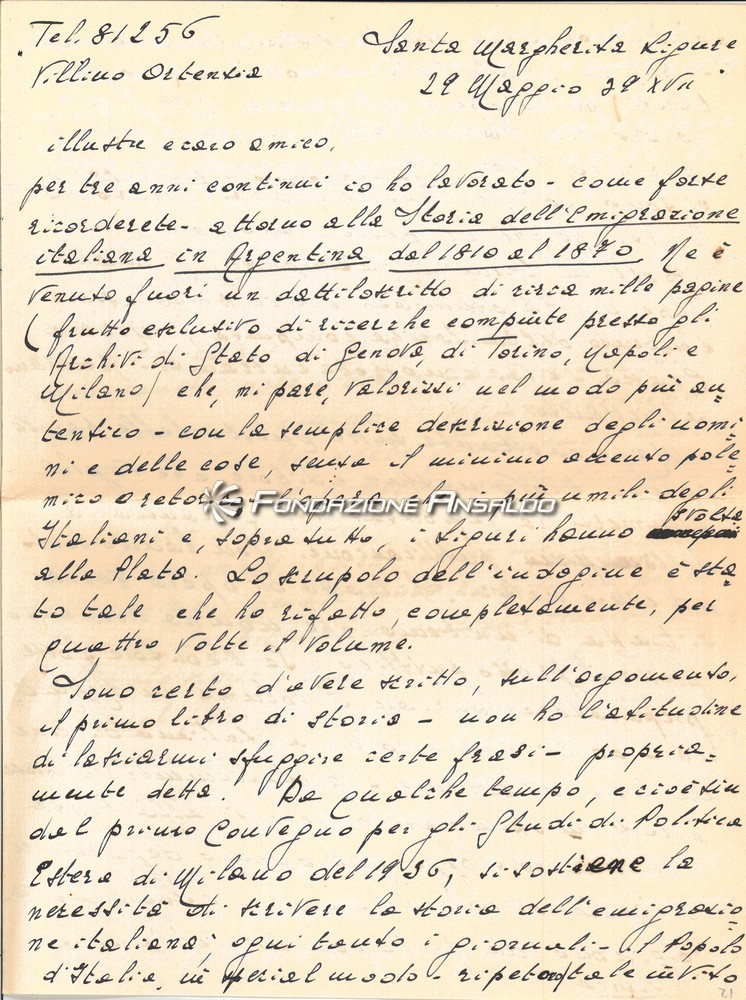 Tel. 81256
Villino Ortensia
Santa Margherita Ligure
29 Maggio 39 XVII
illustre e caro amico,
per tre anni continui io ho lavorato - come forse
ricorderete - attorno alla Storia dell'Emigrazione
italiana in Argentina dal 1810 al 1870. Ne è
venuto fuori un dattiloscritto di circa mille pagine
(frutto esclusivo di ricerche compiute presso gli
Archivi di Stato di Genova, di Torino, Napoli e
Milano) che, mi pare, valorizzi nel modo più au=
tentico - con la semplice descrizione degli uomi=
ni e delle cose, senza il minimo accento pole=
mico o retorico - l'opera che i più umili degli
FONDAZIONE ANSALDO
Italiani e, sopra tutto, i Liguri hanno svolta
alla Plata. Lo scrupolo dell'indagine è sta=
to tale che ho rifatto, completamente, per
quattro volte il volume.
Sono certo d'avere scritto, sull'argomento,
il primo libro di storia - non ho l'abitudine
di lasciarmi sfuggire certe frasi - propria=
mente detta. Da qualche tempo, e cioè sin
dal primo Convegno per gli Studi di Politica
Estera di Milano del 1936, si sostiene la
necessità di scrivere la storia dell'emigrazio=
ne italiana; ogni tanto i giornali - il Popolo
d'Italia, in special modo - ripetono tale invito
21